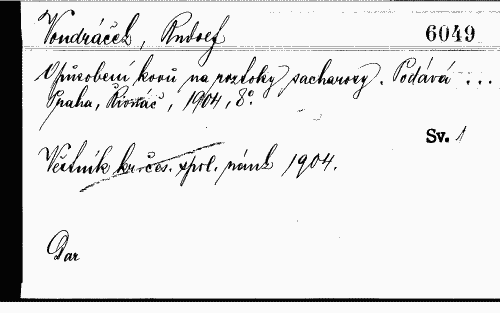 Vondráček, Rudolf
6049
O působení kovů na roztoky sacharosy. Podává ...
Praha, Řivnáč, 1904, 8°.
Sv. 1
Věstník kr. čes. spol. náuk 1904.
Dar